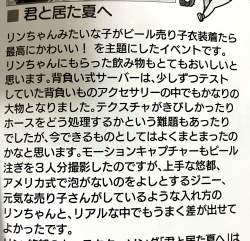 ■君と居た夏へ
リンちゃんみたいな子がビール売り子衣装着たら
最高にかわいい！ を主題にしたイベントです。
リンちゃんにもらった飲み物もとてもおいしいと
思います。背負い式サーバーは、少しずつテスト
していた背負いものアクセサリーの中でもかなりの
大物となりました。テクスチャがきびしかったり
ホースをどう処理するかという難題もあったり
でしたが、今できるものとしてはよくまとまったの
かなと思います。モーションキャプチャーもビール
注ぎを3人分撮影したのですが、上手な悠都、
アメリカ式で泡がないのをよしとするジニー、
元気な売り子さんがしているような入れ方の
リンちゃんと、リアルな中でもうまく差が出せて
よかったです。
「君と居た夏へ」は